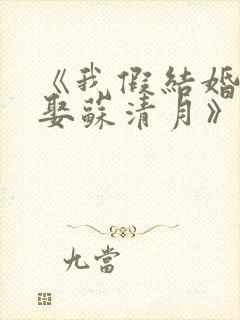 《我假結婚
娶蘇清月》
九當